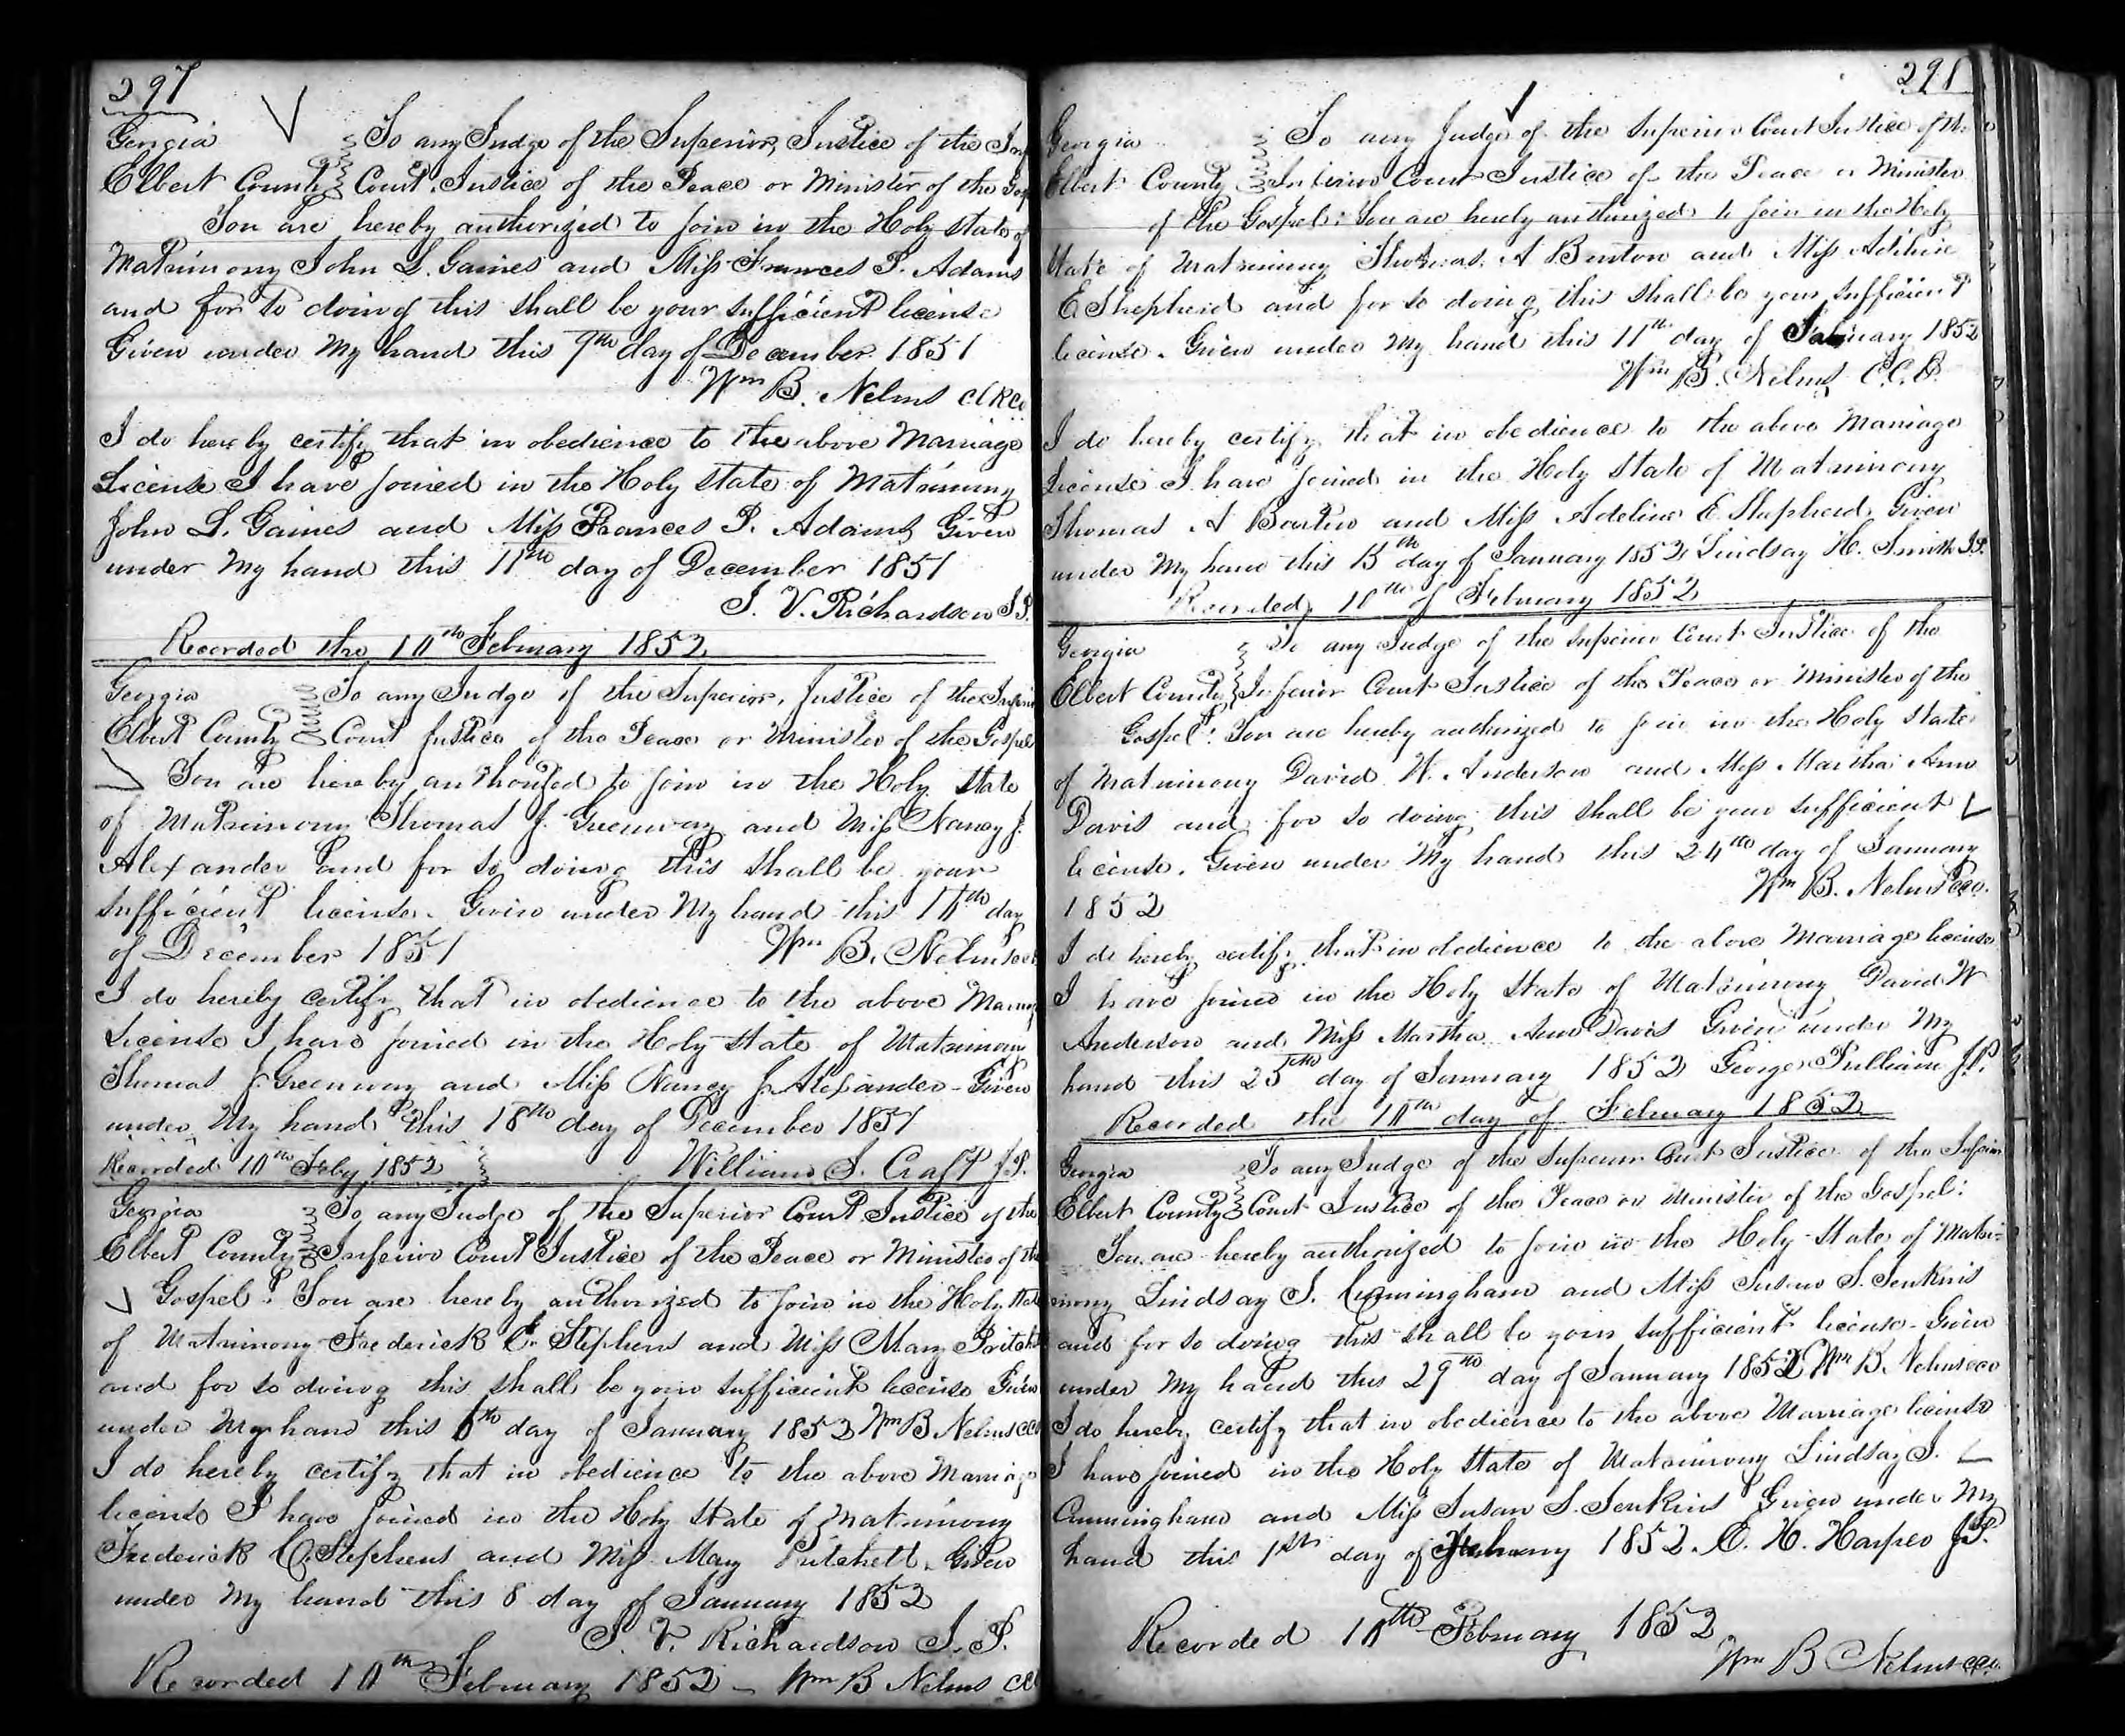 297
Georgia To any Judge of the Superior, Justice of the Inf
Elbert County Court, Justice of the Peace or Minister of the Gosp
You are hereby authorized to join in the Holy state of
Matrimony John L. Gaines and Miss Frances P. Adams
and for so doing this shall be your sufficient license
Given under My hand this 9th day of December 1851
Wm B. Nelms Clk CO
I do hereby certify that in obedience to the above Marriage
License I have joined in the Holy state of Matrimony
John L. Gaines and Miss Frances P. Adams Given
under My hand this 11th day of December 1851
J. V. Richardson J.P.
Recorded the 10th February 1852
Georgia To any Judge of the Superior, Justice of the Inferior
Elbert County Court Justice of the Peace or Minister of the Gospel
You are hereby authorized to join in the Holy State
of Matrimony Thomas J. Greenway and Miss Nancy J.
Alexander and for so doing this shall be your
sufficient license. Given under My hand this day
of December 1851 Wm B. Nelms cco
I do hereby certify that in obedience to the above Marriag
License I have joined in the Holy State of Matrimony
Thomas J. Greenway and Miss Nancy J. Alexander - Given
under My hand this 18th day of December 1851
Recorded 10th Feby 1852 William S. Craft J.P.
Georgia To any Judge of the Superior Court Justice of the
Elbert County Inferior Court Justice of the Peace or Minister of the
Gospel: You are hereby authorized to join in the Holy State
of Matrimony Frederick C. Stephens and Miss Mary Pritch
and for so doing this shall be your sufficient license Given
under My hand this 6th day of January 1852 Wm B Nelms CCO
I do hereby certify that in obedience to the above Marriage
license I have joined in the Holy State of Matrimony
Frederick C. Stephens and Miss Mary Pritchett. Given
under My hand this 8 day of January 1852
J. V. Richardson J. P.
Recorded 10th February 1852 - Wm B Nelms CCO
298
Georgia To any Judge of the Superior Court Justice of the
Elbert County Inferior Court Justice of the Peace or Minister
of the Gospel: You are hereby authorized to join in the Holy
State of Matrimony Thomas A Burton and Miss Adeline
E Shepherd and for so doing this shall be your sufficient
license. Given under My hand this 11th day of January 1852
Wm B. Nelms C.C.O.
I do hereby certify that in obedience to the above Marriage
License I have joined in the Holy State of Matrimony
Thomas A Burton and Miss Adeline E. Shepherd. Given
under My hand this 15th day of January 1852 Lindsay H. Smith J.P.
Recorded 10th of February 1852
Georgia To any Judge of the Superior Court Justice of the
Elbert County Inferior Court Justice of the Peace or Minister of the
Gospel: You are hereby authorized to join in the Holy State
of Matrimony David W. Anderson and Miss Martha Ann
Davis and for so doing this shall be your sufficient
license. Given under My hand this 24th day of January
1852 Wm B. Nelms cco.
I do hereby certify that in obedience to the above Marriage license
I have joined in the Holy State of Matrimony David W
Anderson and Miss Martha Ann Davis Given under My
hand this 25th day of January 1852 George Pulliam J.P.
Recorded the 10th day of February 1852
Georgia To any Judge of the Superior Court Justice of the Inferior
Elbert County Court Justice of the Peace or Minister of the Gospel:
You are hereby authorized to join in the Holy State of Matri=
mony Lindsay S. Cunningham and Miss Susan S. Jenkins
and for so doing this shall be your sufficient license - Given
under My hand this 29th day of January 1852 Wm B. Nelms cco
I do hereby certify that in obedience to the above Marriage license
I have joined in the Holy State of Matrimony Lindsay S.
Cunningham and Miss Susan S. Jenkins Given under My
hand this 1st day of February 1852. C. H. Harper J.P.
Recorded 10th February 1852
Wm B Nelms cco.